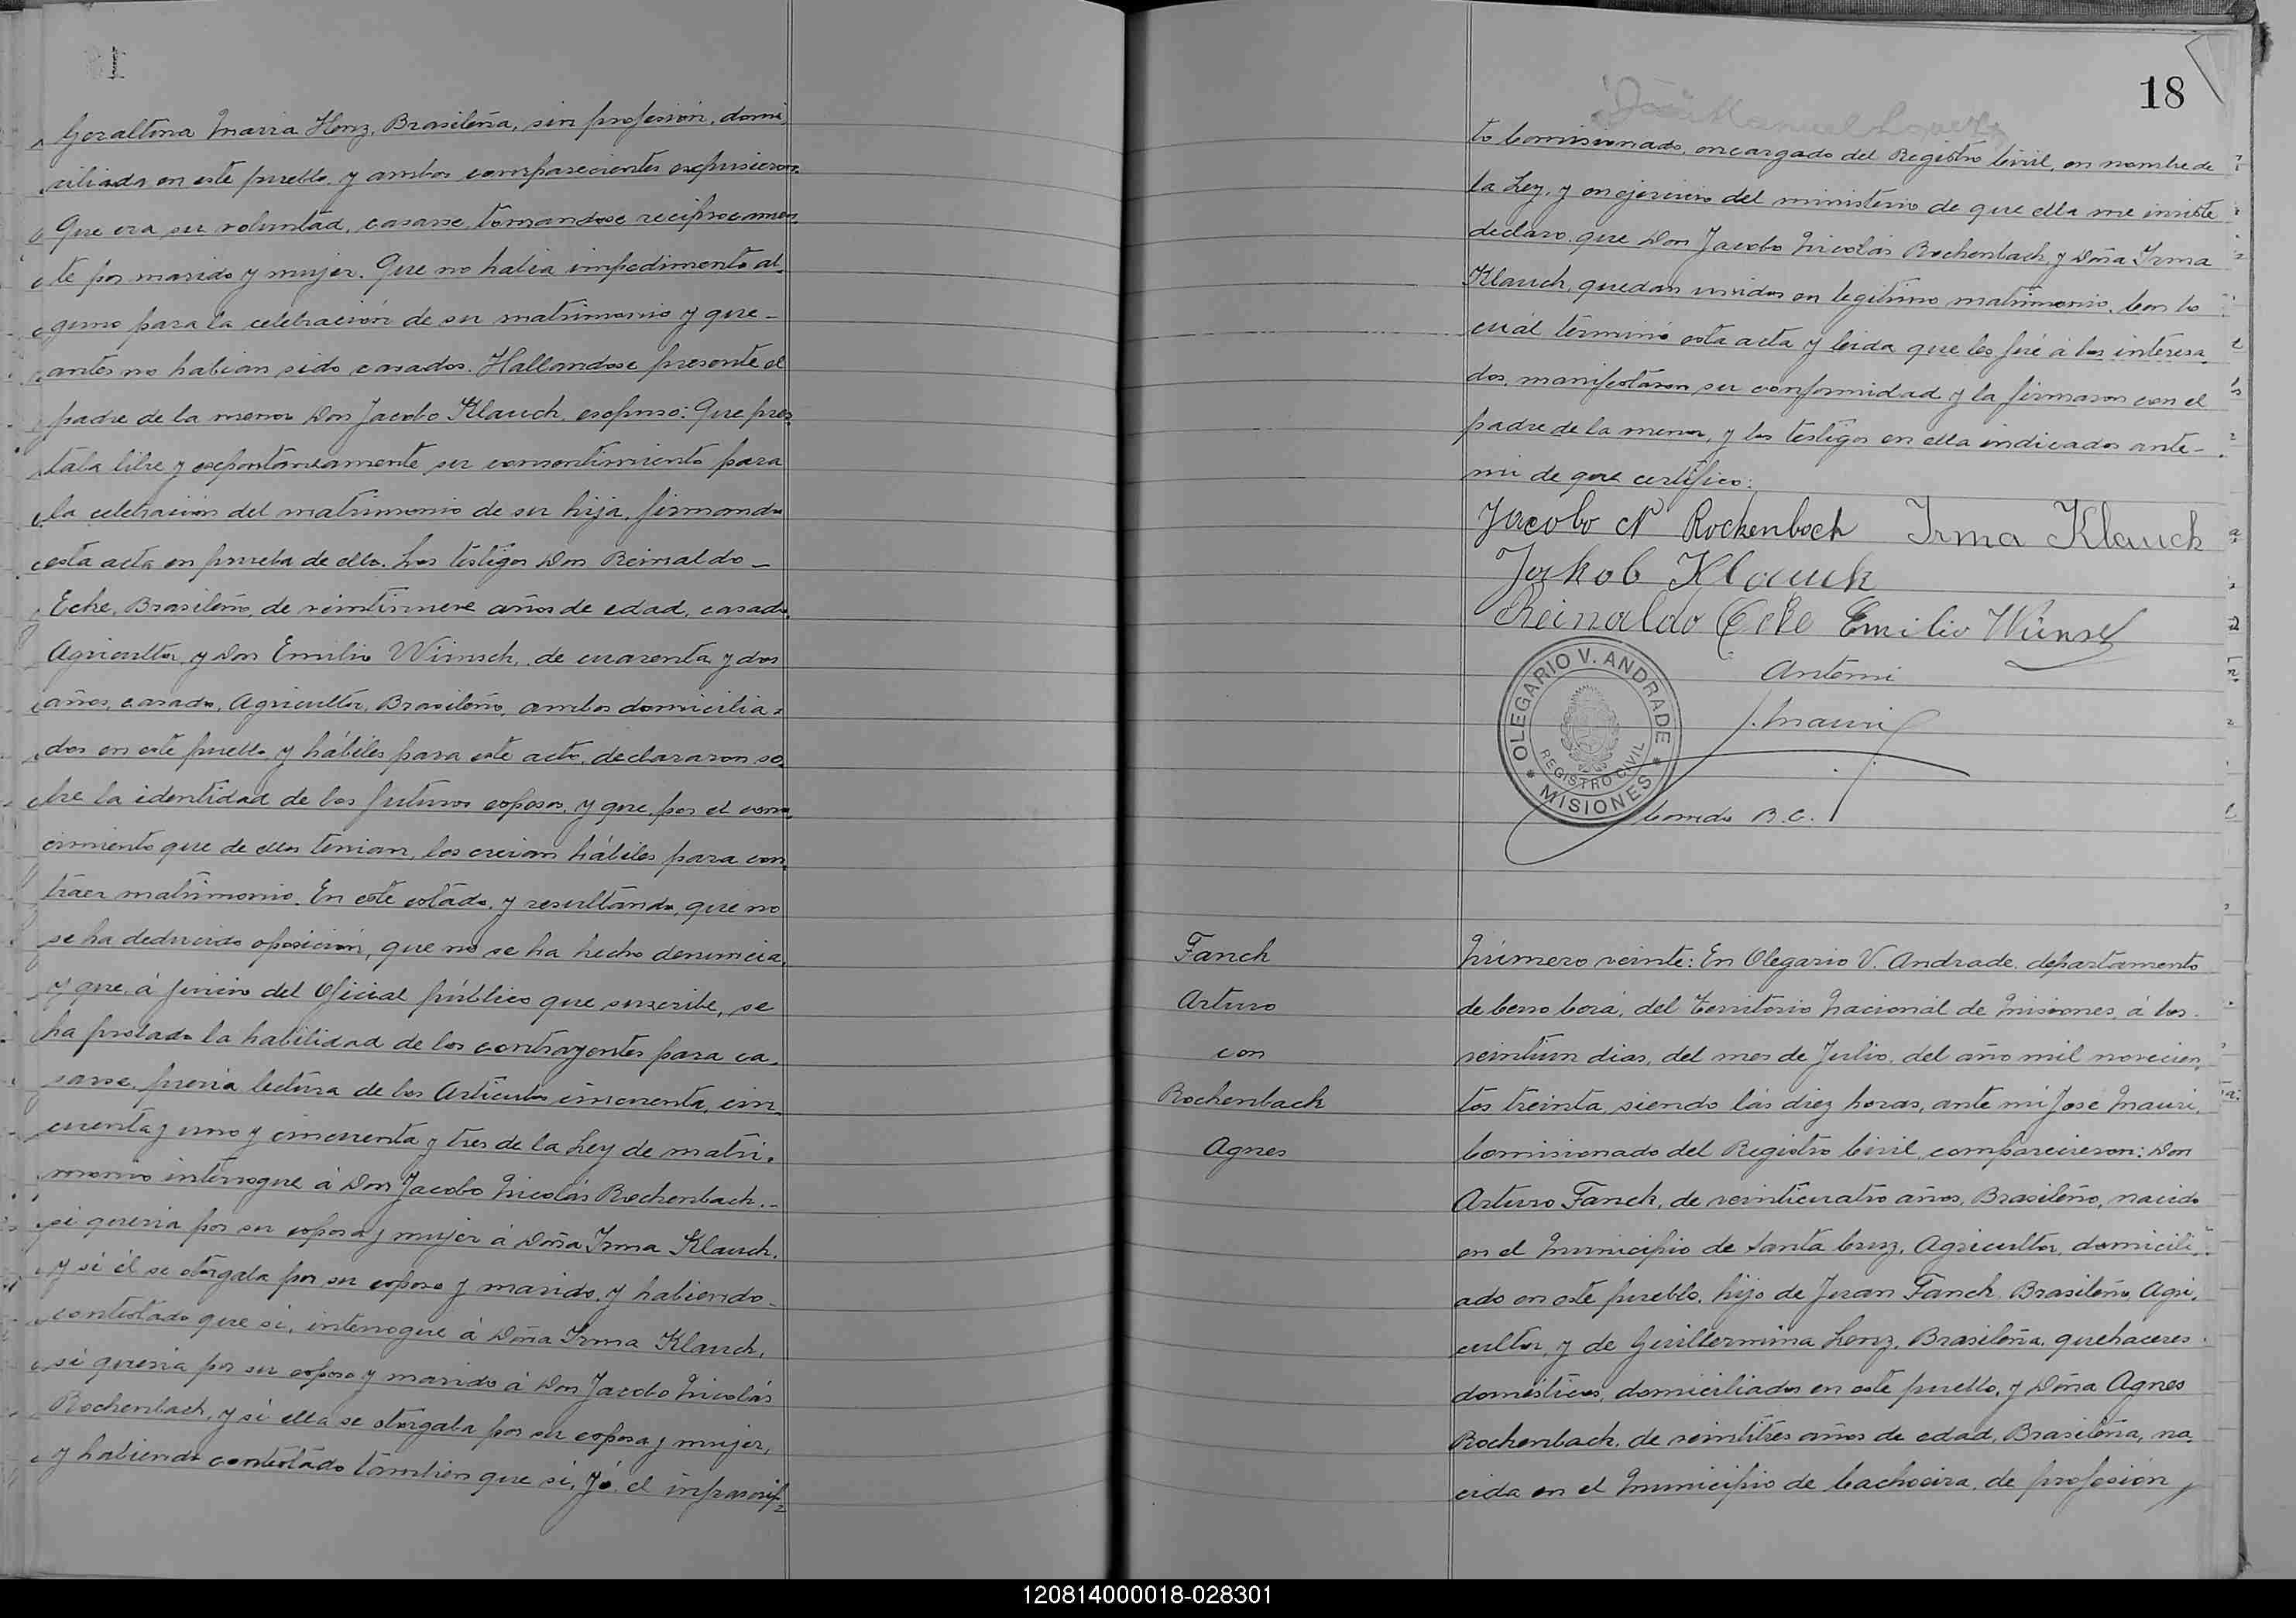 Geraltina Maria Henz, Brasileña, sin profesión, domi-
ciliada en este pueblo, y ambos comparecientes expusieron:
Que era su voluntad, casarse, tomandose reciprocamen-
te por marido y mujer. Que no habia impedimento al-
guno para la celebración de su matrimonio y que -
antes no habian sido casados. Hallandose presente el
padre de la menor Don Jacobo Klauck, expuso: Que pres-
taba libre y espontáneamente su consentimiento para
la celebración del matrimonio de su hija, firmando
esta acta en prueba de ello. Los testigos Don Reinaldo -
Ecke, Brasileño, de veintinueve años de edad, casado,
Agricultor, y Don Emilio Wünsch, de cuarenta y dos
años, casado, Agricultor, Brasileño, ambos domicilia-
dos en este pueblo, y hábiles para este acto, declararon so-
bre la identidad de los futuros esposos, y que, por el cono-
cimiento que de ellos tenian, los creian hábiles para con-
traer matrimonio. En este estado, y resultando, que no
se ha deducido oposición, que no se ha hecho denuncia,
y que, á juicio del Oficial público que suscribe, se
ha probado la habilidad de los contrayentes para ca-
sarse, previa lectura de los Artículos cincuenta, cin-
cuenta y uno y cincuenta y tres de la Ley de matri-
monio interrogue á Don Jacobo Nicolás Rochenbach -
si queria por su esposa y mujer á Doña Irma Klauck,
y si él se otorgaba por su esposo y marido, y habiendo -
contestado que si, interrogue á Doña Irma Klauck,
si queria por su esposo y marido á Don Jacobo Nicolás
Rochenbach, y si ella se otorgaba por su esposa y mujer,
y habiendo contestado tambien que si, Yó, el infrascrip-
18
to Comisionado, encargado del Registro Civil, en nombre de
la Ley, y en ejercicio del ministerio de que ella me inviste
declaro, que Don Jacobo Nicolás Rochenbach, y Doña Irma
Klauck, quedan unidos en legítimo matrimonio. Con lo
cuál terminó esta acta y leida que les fué á los interesa-
dos, manifestaron su conformidad y la firmaron con el
padre de la menor, y los testigos en ella indicados ante-
mi de que certifico:
Jacobo N Rockenbach Irma Klauck
Jakob Klauck
Reinaldo Ecke Emilio Wünsch
Antemi
J. Mauri
OLEGARIO V. ANDRADE
REGISTRO CIVIL
* MISIONES *
Comdo R.C.
Fanck
Arturo
con
Rochenbach
Agnes
Número veinte: En Olegario V. Andrade, departamento
de Cerro Corá, del Territorio Nacional de Misiones, á los
veintiun dias, del mes de Julio, del año mil novecien-
tos treinta, siendo las diez horas, ante mi José Mauri,
Comisionado del Registro Civil, comparecieron: Don
Arturo Fanck, de veinticuatro años, Brasileño, nacido
en el Municipio de Santa Cruz, Agricultor, domicili-
ado en este pueblo, hijo de Juan Fanck, Brasileño, Agri-
cultor, y de Guillermina Lenz, Brasileña, quehaceres
domésticos, domiciliados en este pueblo, y Doña Agnes
Rochenbach, de veintitres años de edad, Brasileña, na-
cida en el Municipio de Cachoeira, de profesión
120814000018-028301